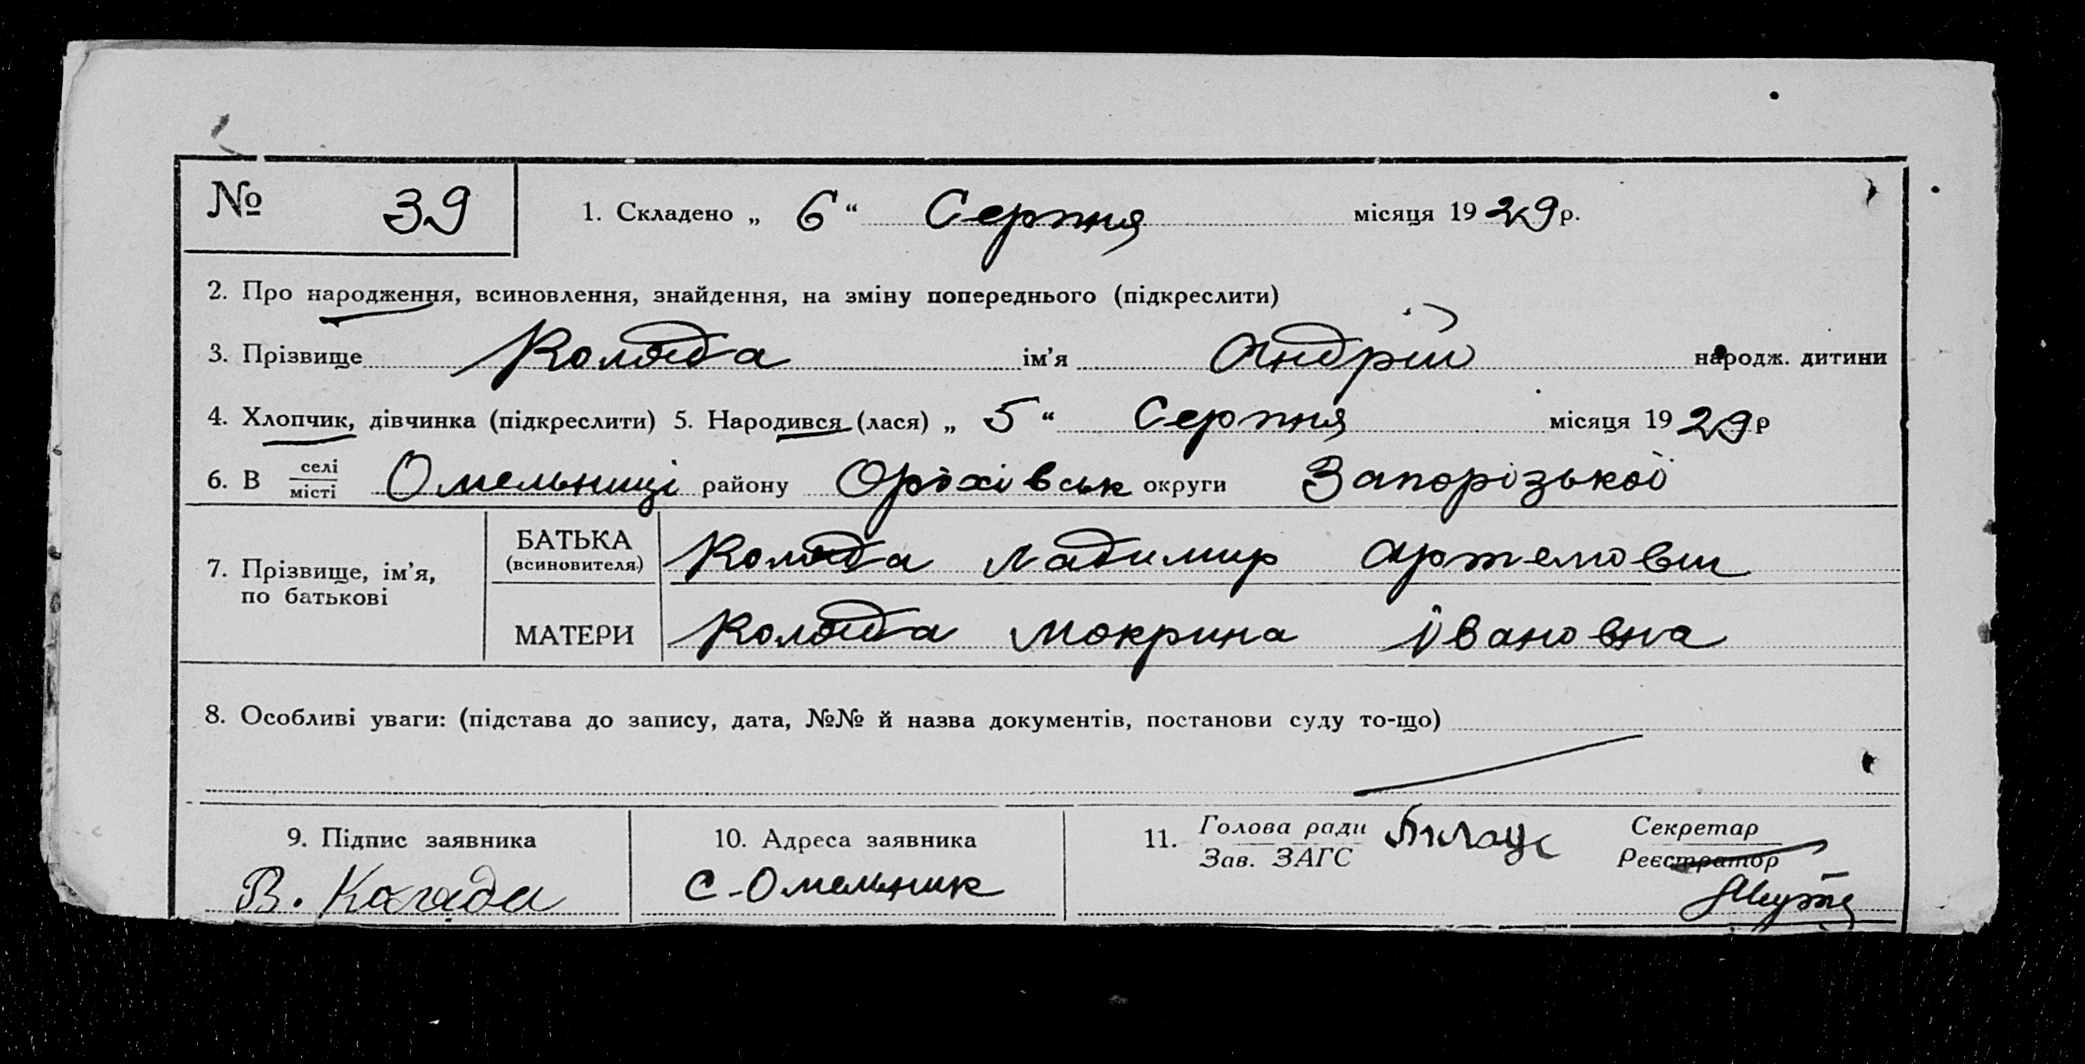 № 39 1. Складено „ 6 “ Серпня місяця 1929 р.
2. Про народження, всиновлення, знайдення, на зміну попереднього (підкреслити)
3. Прізвище Коляда ім’я Андрій народж. дитини
4. Хлопчик, дівчинка (підкреслити) 5. Народився (лася) „ 5 “ Серпня місяця 1929 р
6. В селі місті Омельниці району Оріхівськ округи Запорізької
7. Прізвище, ім’я, по батькові
БАТЬКА (всиновителя) Коляда Ладимир Артемович
МАТЕРИ Коляда Мокрина Івановна
8. Особливі уваги: (підстава до запису, дата, №№ й назва документів, постанови суду то-що)
9. Підпис заявника
В. Коляда
10. Адреса заявника
С-Омельник
11. Голова ради
Зав. ЗАГС
Секретар
Реєстратор